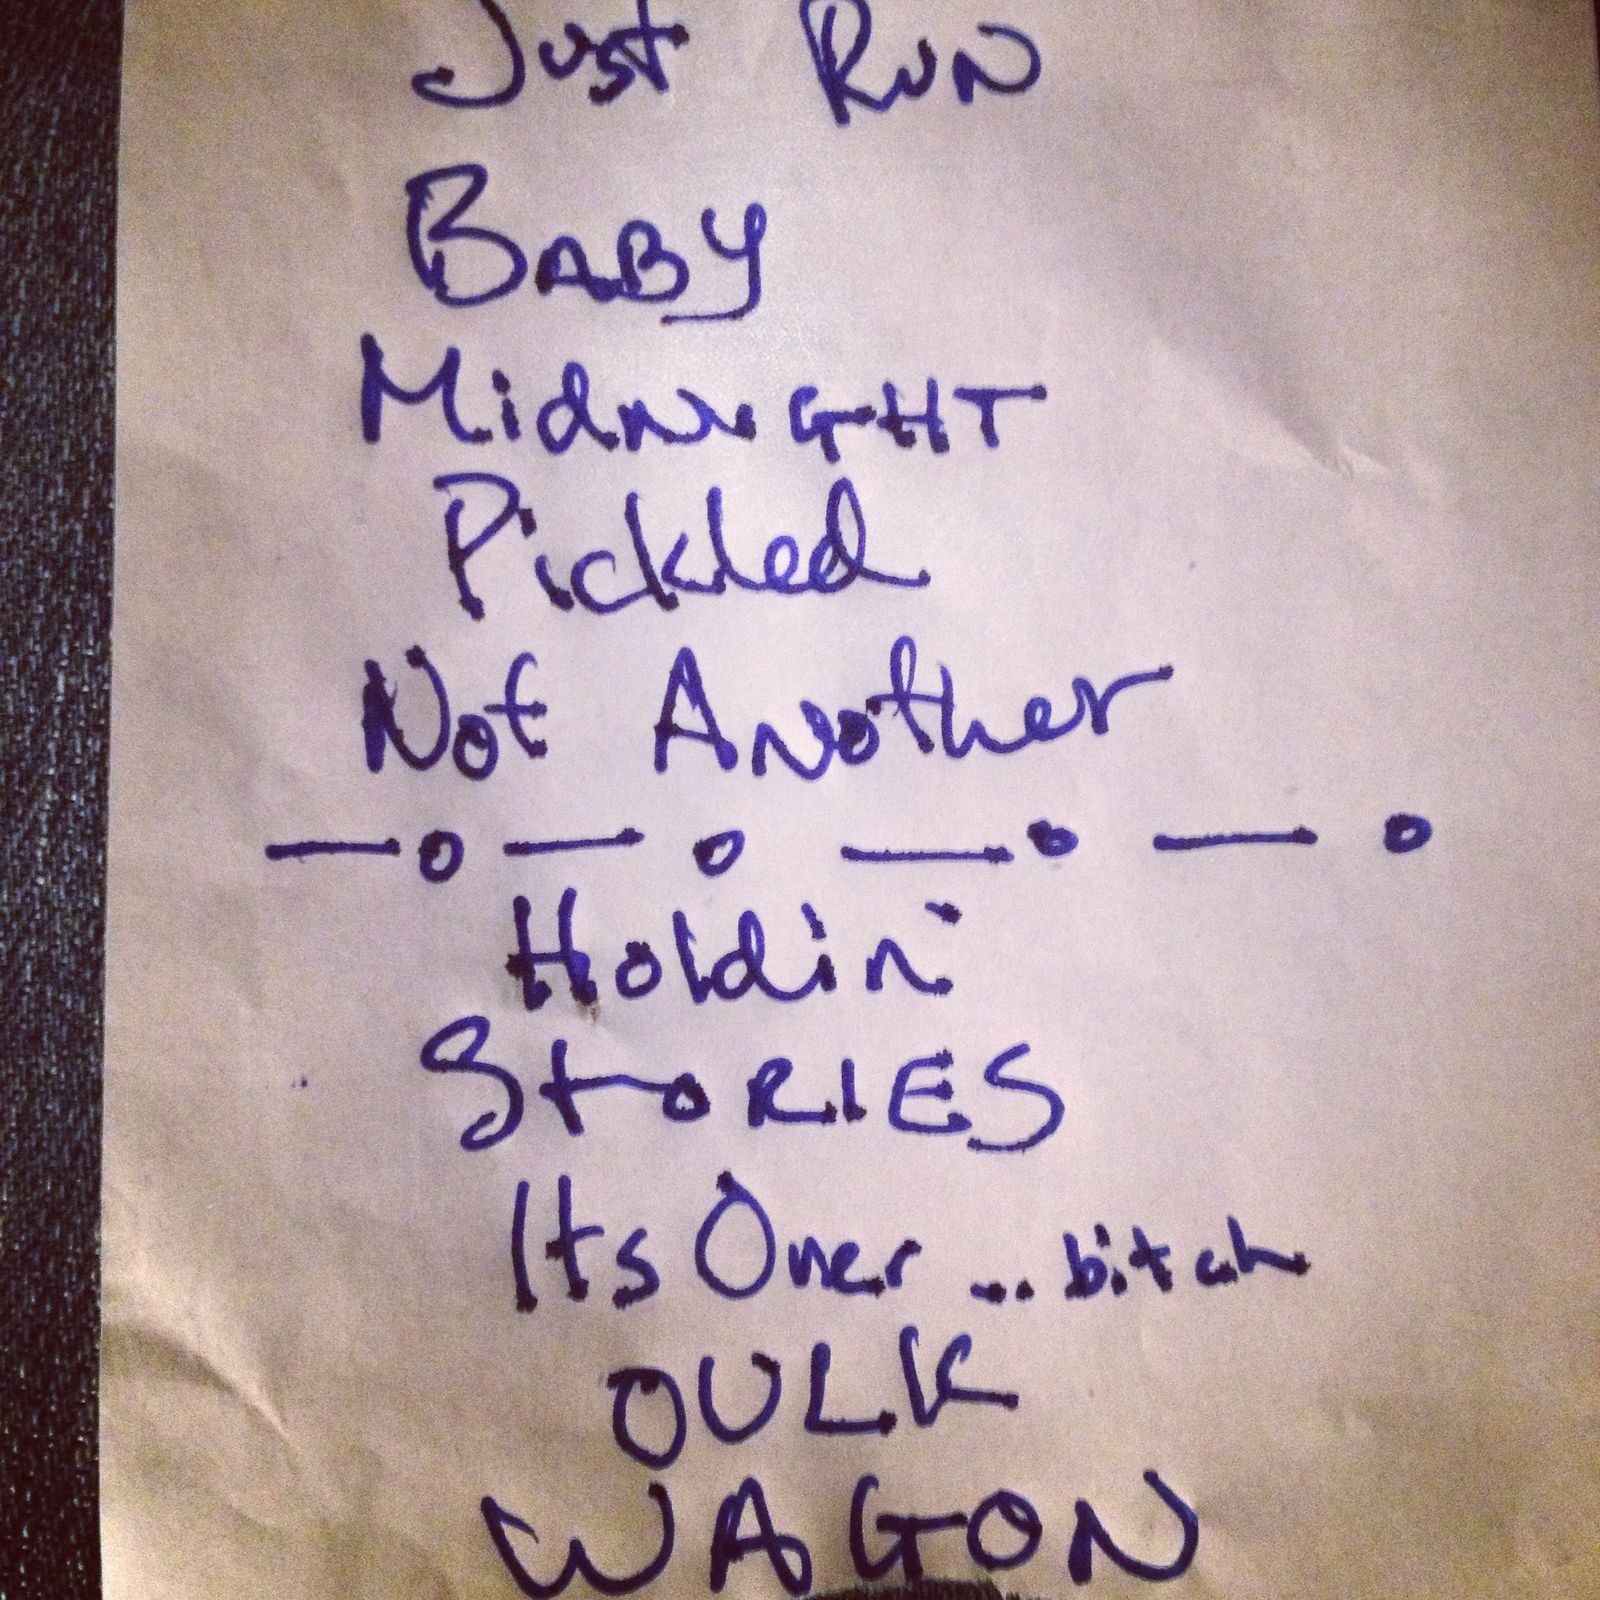 Just Run
Baby
Midnight
Pickled
Not Another
— o — o — o — o
Holdin'
Stories
Its Over ... bitch
OULK
WAGON